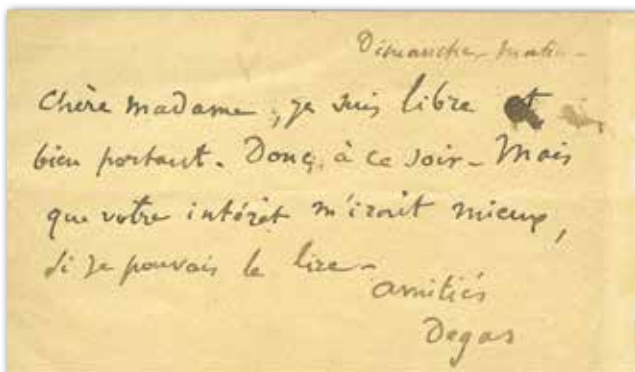 Dimanche matin -
Chère Madame, je suis libre et
bien portant. Donc, à ce soir - Mais
que votre intérêt m'irait mieux,
si je pouvais le lire -
amitiés
Degas